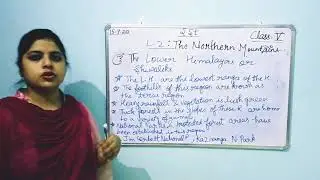 15-7-20
SST
Class V
L-2: The Northern Mountains
③ The Lower Himalayas or Shivaliks
* The L.H are the lowest ranges of the H.
* The foothills of this region are known as the terai region
* Heavy rainfall & vegetation is lush green.
* Thick forests on the slopes of these are home to a variety of animals
* National Parks & protected forest areas have been established in this region.
"Jim Corbett National", Kaziranga N. Park